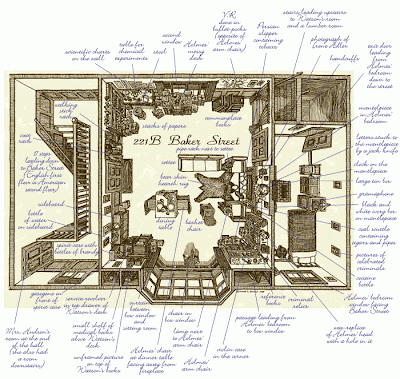 stairs leading upstairs
to Watson's room
and a lumber room
V.R.
done in
bullet-pocks
(opposite of
Holmes'
arm chair)
Persian
slipper
containing
tobacco
photograph of
Irene Adler
handcuffs
exit door
leading
from
Holmes'
bedroom
down to
the street
scientific charts
on the wall
table for
chemical
experiments
second
window
stool
Holmes'
messy
desk
commonplace
books
walking
stick
rack
coat
rack
stacks of papers
mantelpiece
in Holmes'
bedroom
221B Baker Street
pipe rack next to settee
letters stuck to
the mantelpiece
by a jack knife
17 steps
leading down
to Baker Street
(English first
floor is American
second floor)
settee
bear skin
hearth rug
clock on the
mantelpiece
large tin box
gramophone
black and
white ivory box
on mantelpiece
sideboard
bottle
of water
on sideboard
dining
table
basket
chair
coal scuttle
containing
cigars and pipes
pictures of
celebrated
criminals
spirit case with
bottles of brandy
cocaine
bottle
gasogene in
front of
spirit case
service revolver
in top drawer of
Watson's desk
screen
between
bow window
and
sitting room
chair in
bow window
reference
books
criminal
relics
Holmes' bedroom
window facing
Baker Street
Mrs. Hudson's
room at the end
of the hall
(she also had
a room
downstairs)
small shelf of
medical books
above Watson's
desk
lamp next
to Holmes'
arm chair
passage leading
from Holmes'
bedroom
to bow window
wax replica
of Holmes' head
with a hole in it
unframed picture
on top of
Watson's books
Holmes' chair
at dinner table
facing away from
fireplace
Holmes'
arm chair
violin case
in the corner